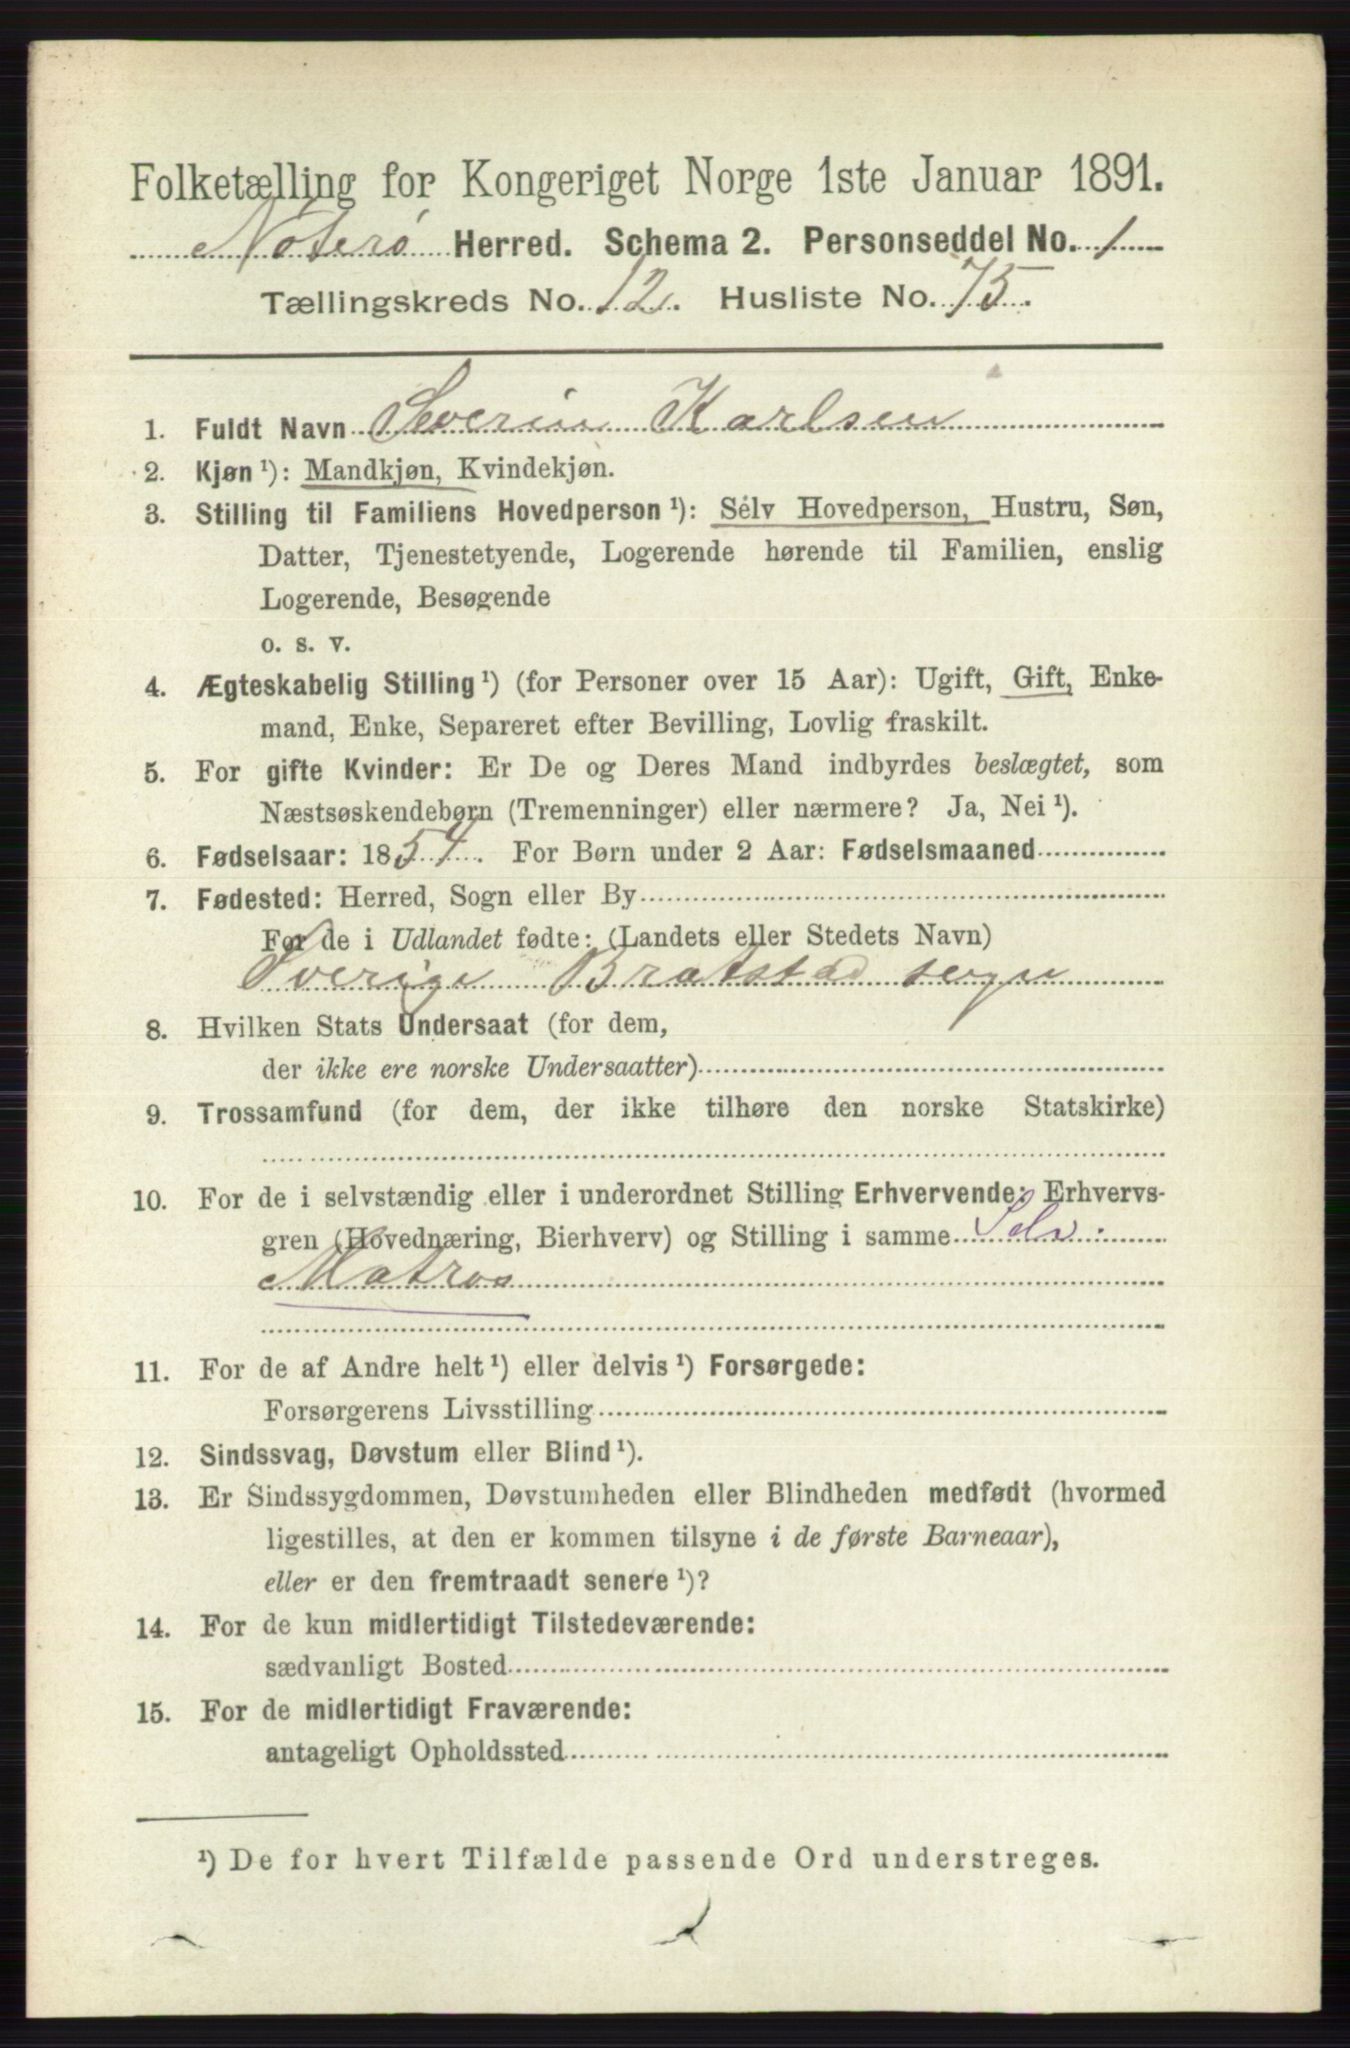 Folketælling for Kongeriget Norge 1ste Januar 1891.
Nøterø Herred. Schema 2. Personseddel No. 1
Tællingskreds No. 12. Husliste No. 75.
1. Fuldt Navn Severin Karlsen
2. Kjøn ¹): Mandkjøn, Kvindekjøn.
3. Stilling til Familiens Hovedperson ¹): Selv Hovedperson, Hustru, Søn,
Datter, Tjenestetyende, Logerende hørende til Familien, enslig
Logerende, Besøgende
o. s. v.
4. Ægteskabelig Stilling ¹) (for Personer over 15 Aar): Ugift, Gift, Enke-
mand, Enke, Separeret efter Bevilling, Lovlig fraskilt.
5. For gifte Kvinder: Er De og Deres Mand indbyrdes beslægtet, som
Næstsøskendebørn (Tremenninger) eller nærmere? Ja, Nei ¹).
6. Fødselsaar: 1854. For Børn under 2 Aar: Fødselsmaaned
7. Fødested: Herred, Sogn eller By
For de i Udlandet fødte: (Landets eller Stedets Navn)
Sverige Bratstad sogn
8. Hvilken Stats Undersaat (for dem,
der ikke ere norske Undersaatter)
9. Trossamfund (for dem, der ikke tilhøre den norske Statskirke)
10. For de i selvstændig eller i underordnet Stilling Erhvervende: Erhvervs-
gren (Hovednæring, Bierhverv) og Stilling i samme Selv.
Matros
11. For de af Andre helt ¹) eller delvis ¹) Forsørgede:
Forsørgerens Livsstilling
12. Sindssvag, Døvstum eller Blind ¹).
13. Er Sindssygdommen, Døvstumheden eller Blindheden medfødt (hvormed
ligestilles, at den er kommen tilsyne i de første Barneaar),
eller er den fremtraadt senere ¹)?
14. For de kun midlertidigt Tilstedeværende:
sædvanligt Bosted
15. For de midlertidigt Fraværende:
antageligt Opholdssted
¹) De for hvert Tilfælde passende Ord understreges.